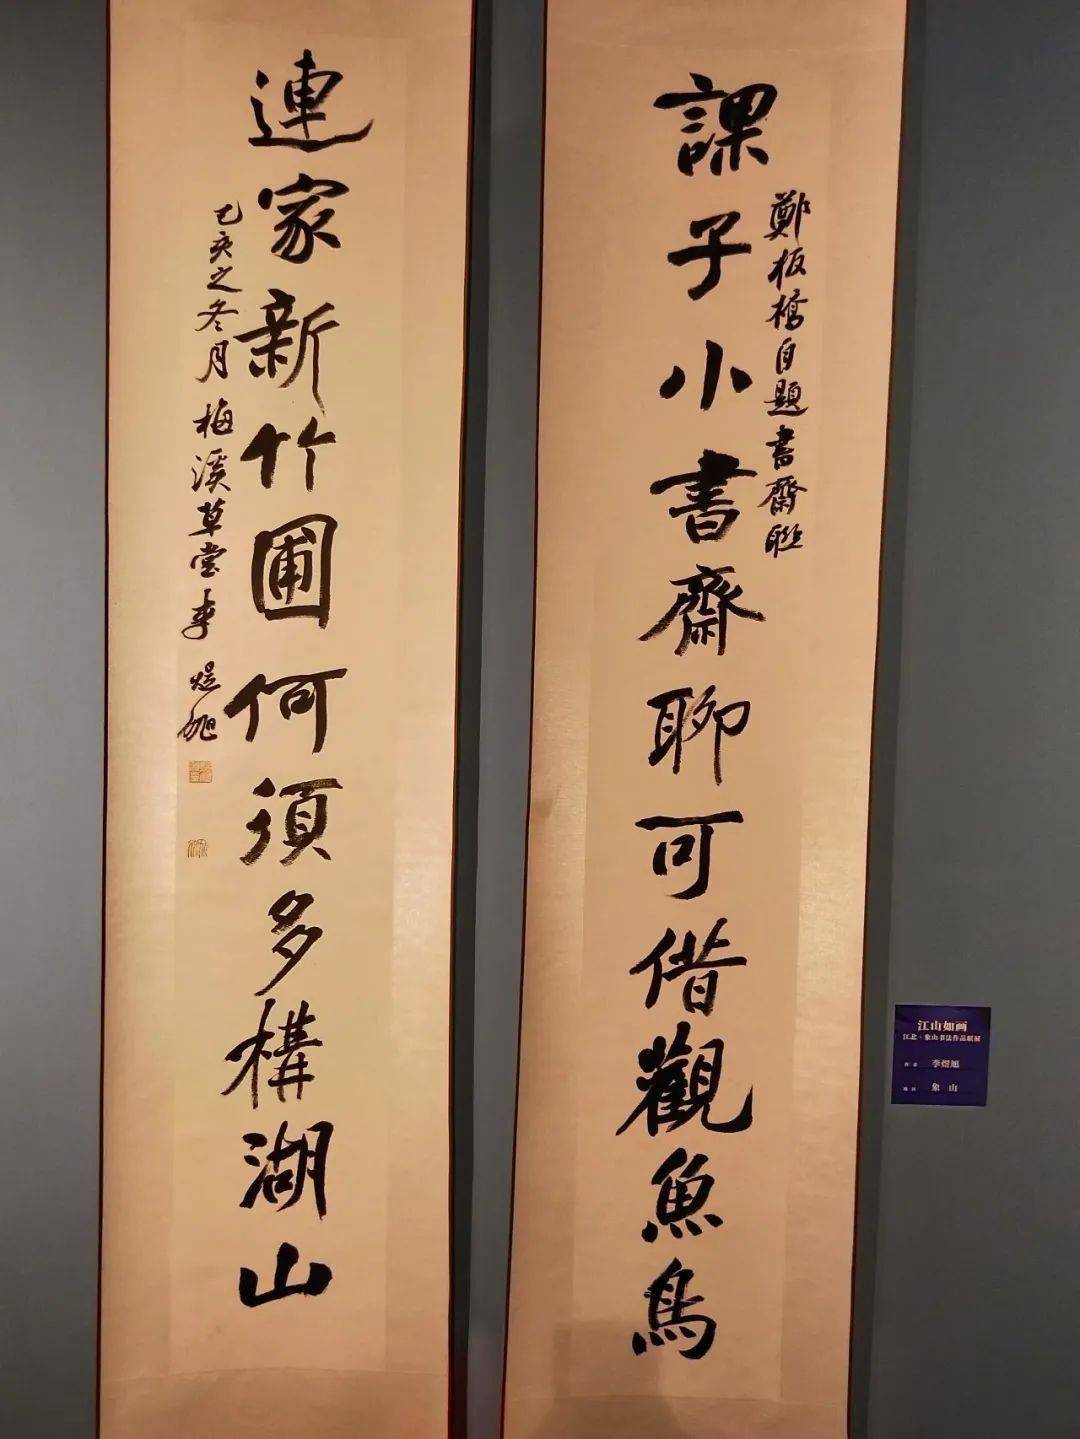 課子小書齋聊可借觀魚鳥
鄭板橋自題書齋聯
連家新竹圃何須多構湖山
己亥之冬月梅溪草堂李煜旭
江山如画
江北·象山书法作品联展
李煜旭
象 山